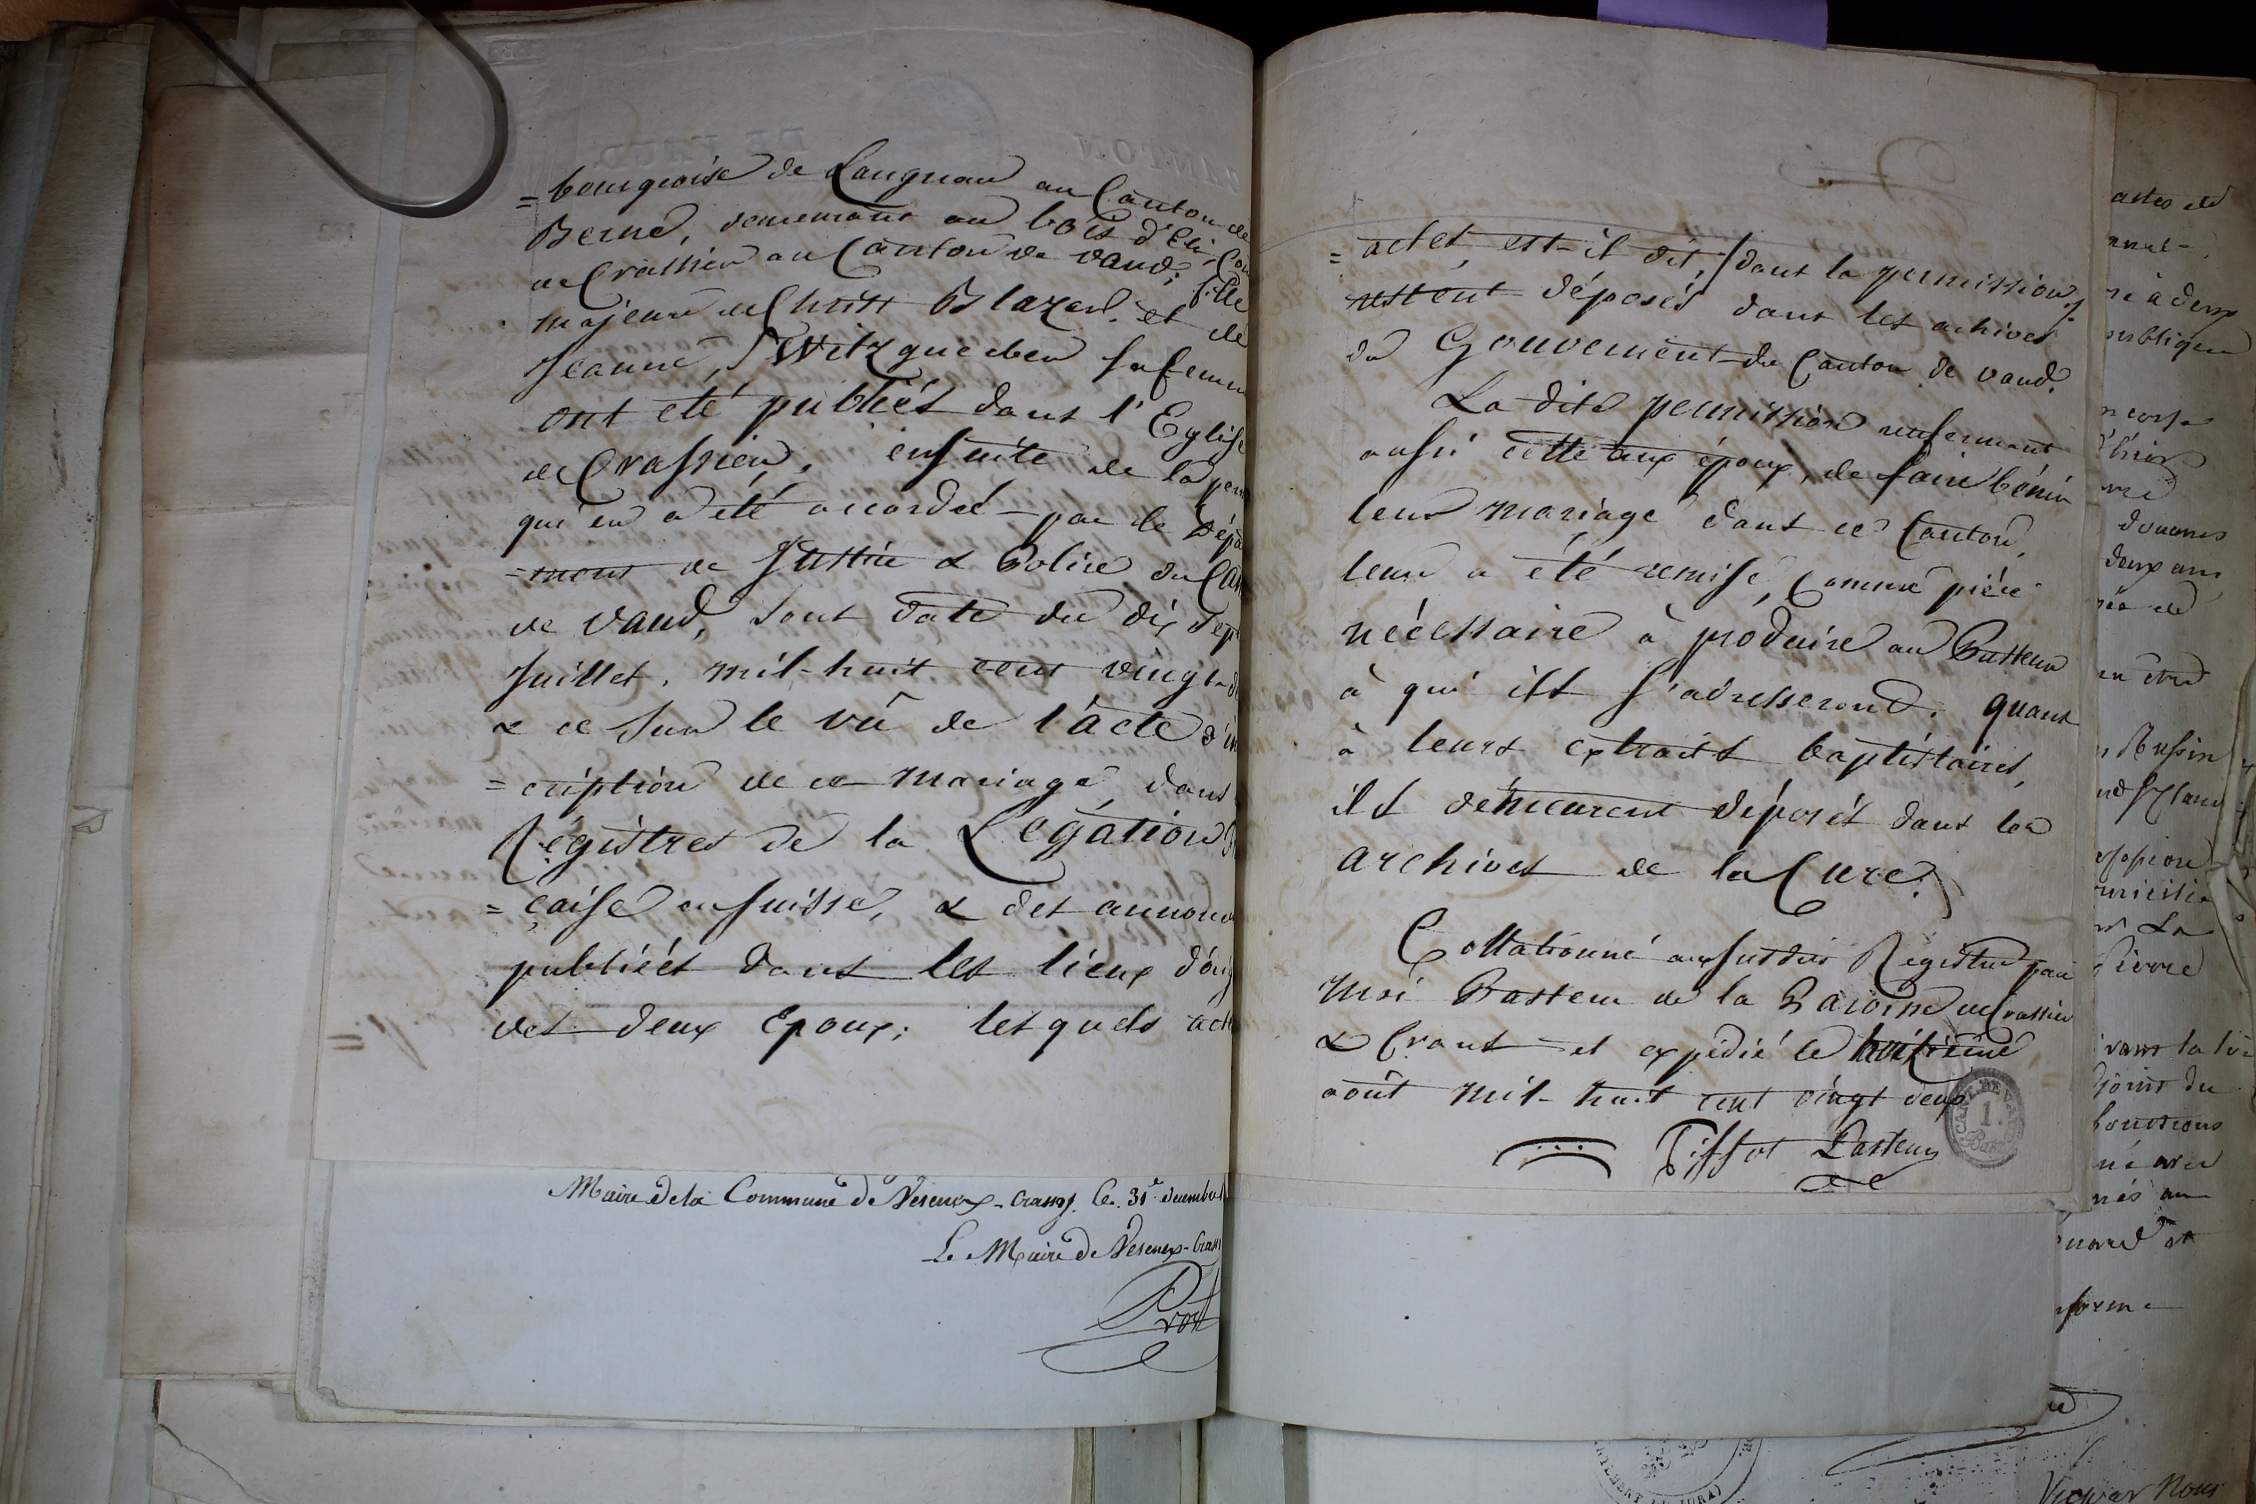 = bourgeoise de Langnau au Canton de
Berne, demeurant au bois d'Eli, Com
de Crassier au Canton de Vaud, fille
majeure de Christ Blazer et de
Jeanne, sa femme
ont été publiés dans l'Eglise
de Crassier, ensuite de la per
qui en a été accordée par le Dépa
=ment de Justice & Police du Can
de Vaud, sous date du dix sept
Juillet, mil-huit cent vingt-d
& ce sur le vû de l'acte d'in
=cription de ce mariage dans
Régistres de la Légation
=çaise en Suisse, & des annonc
publiées dans les lieux d'ori
des deux Epoux; lesquels act
Maire de la Commune de Vesenex-Crassy. le 31e decemb
Le Maire de Vesenex-Crass
Prost
= actes, est-il dit, dans la permission,
restent déposés dans les achives
du Gouvement du Canton de Vaud.
La dite permission renfermant
aussi celle aux époux, de faire bénir
leur mariage dans ce Canton,
leur a été remise, comme pièce
nécessaire à produire au Pasteur
à qui ils s'adresseront, quant
à leurs extraits baptistaires,
ils démeurent déposés dans les
archives de la Cure.
Collationné au susdit Régistre par
moi Pasteur de la Paroisse de Crassier
& Crans et expédié le huitième
août mil-huit cent vingt deux
Tissot Pasteur
CANT. DE VAUD
1.
Baz
actes de
publique
douanes
deux ans
Pierre
Joint du
forme